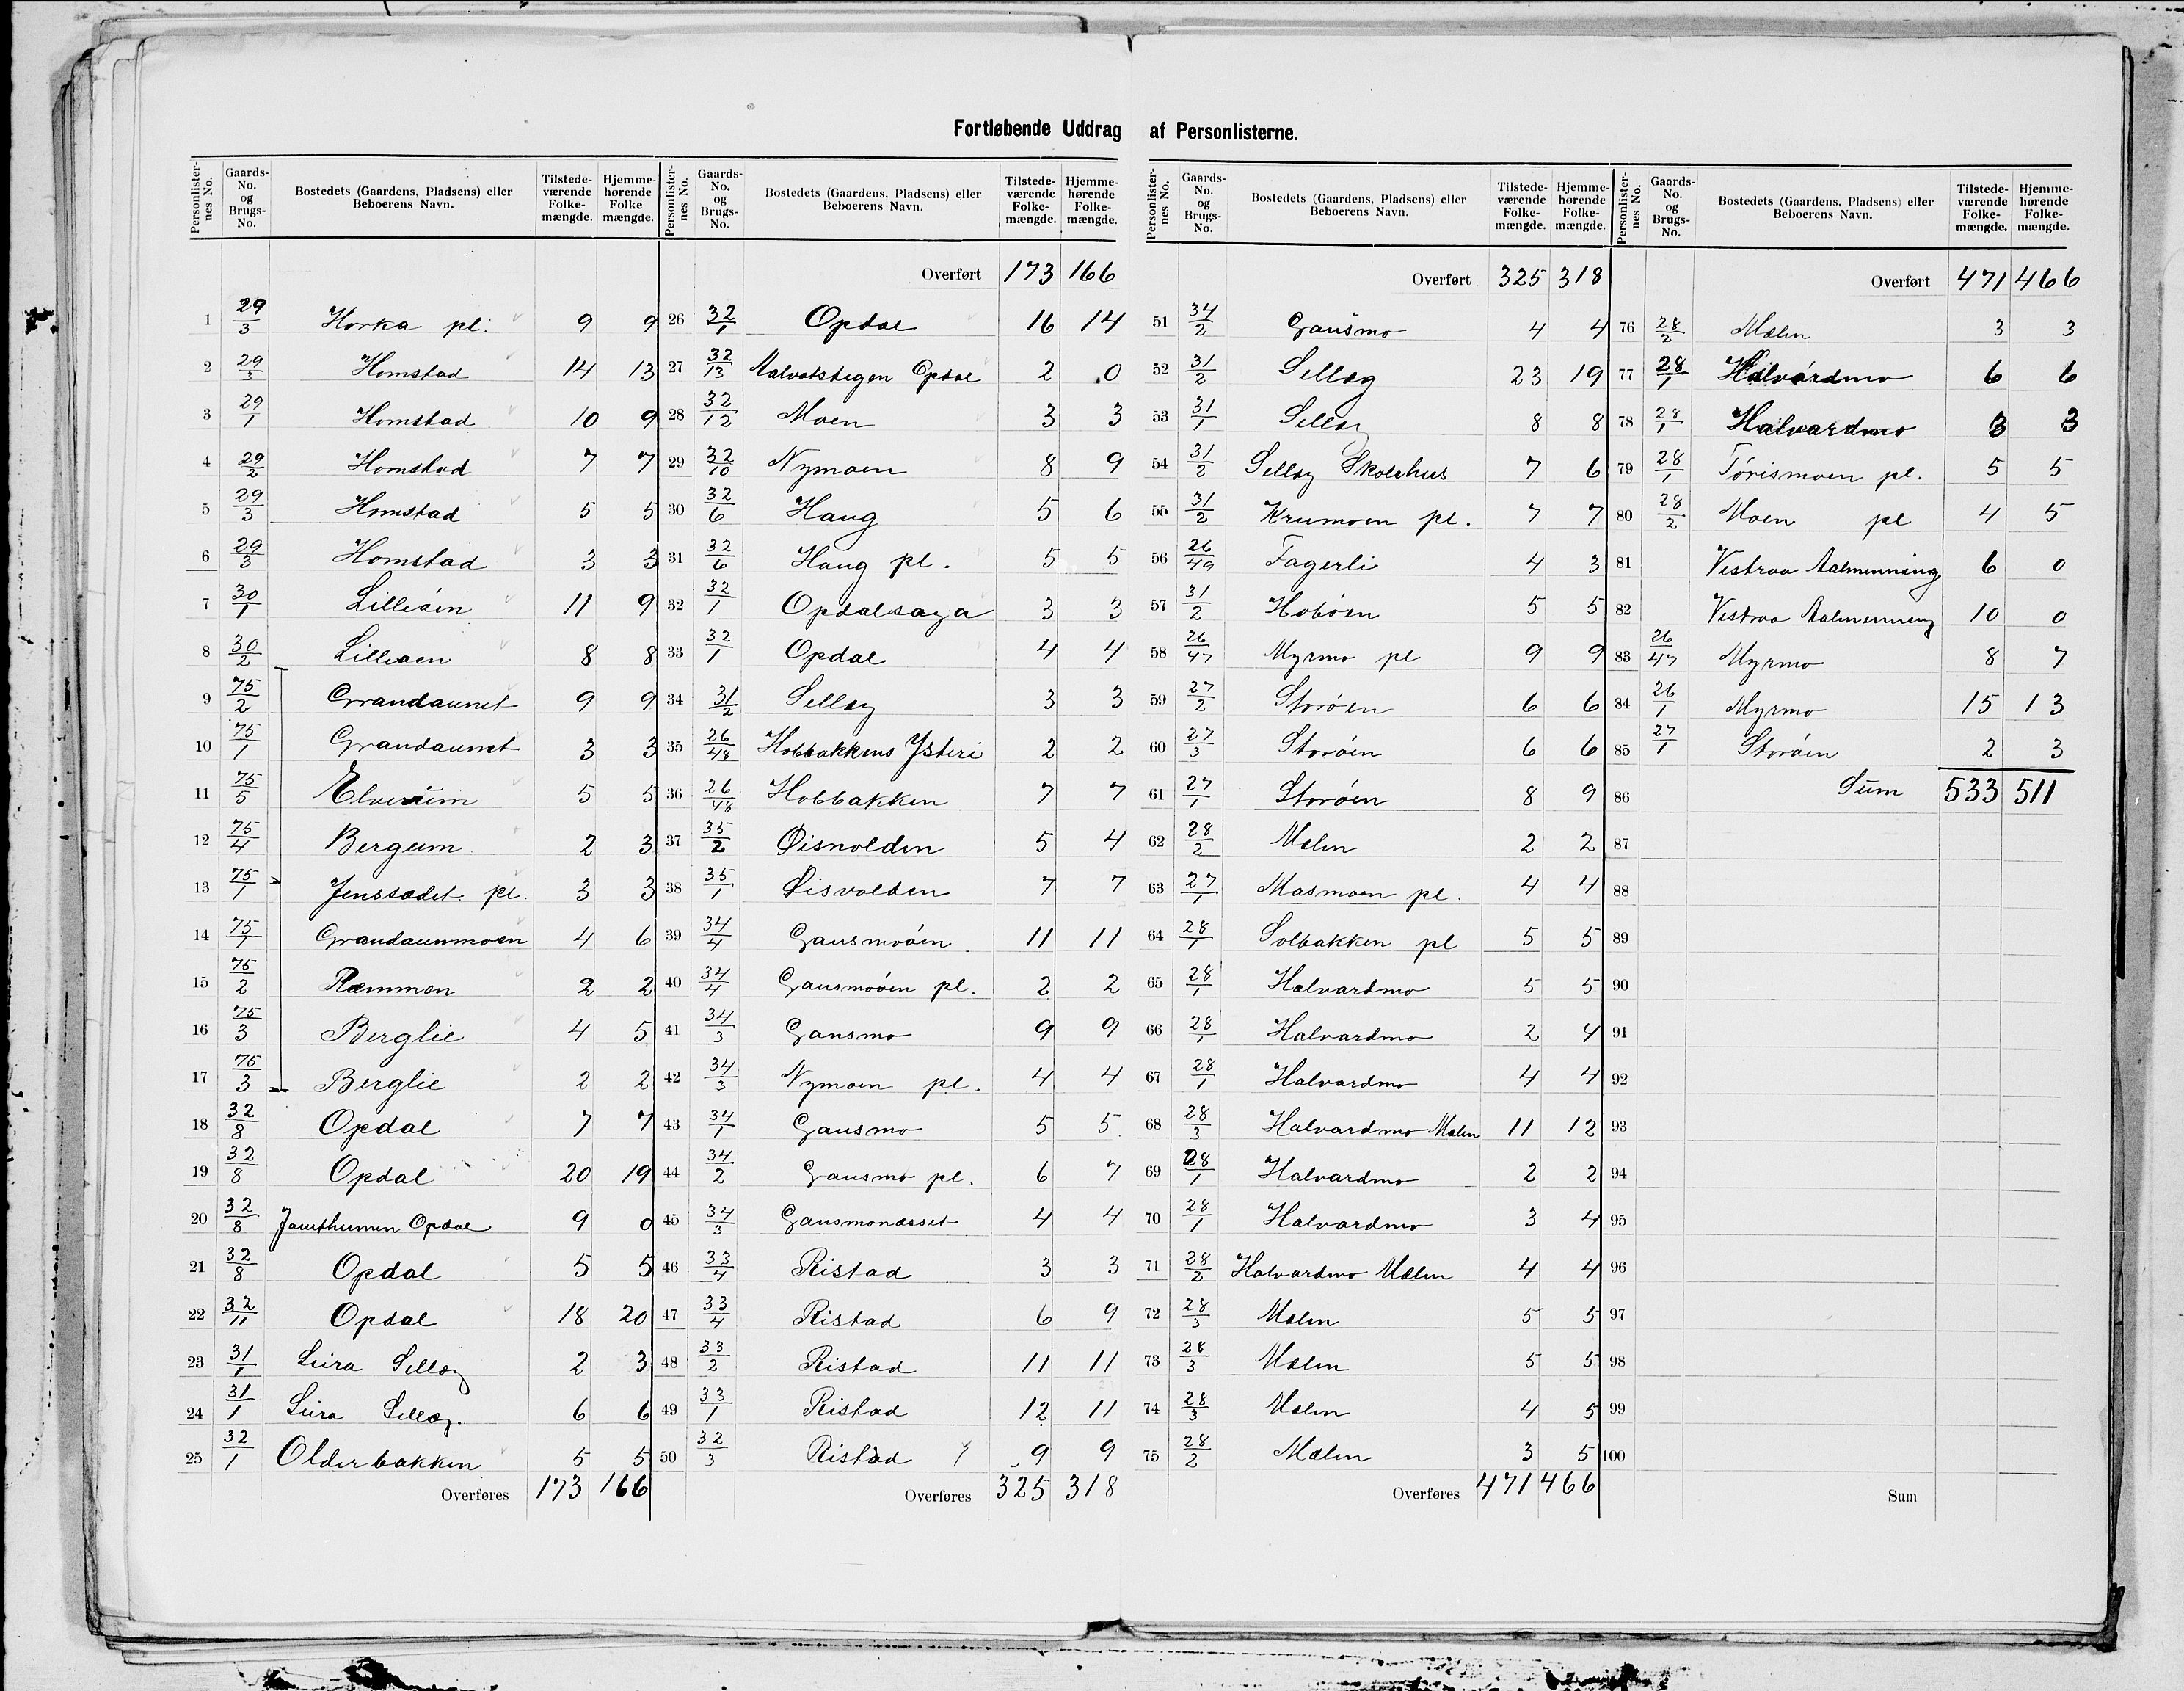 Fortløbende Uddrag af Personlisterne.
Personlister-nes No. Gaards-No. og Brugs-No. Bostedets (Gaardens, Pladsens) eller Beboerens Navn. Tilstede-værende Folke-mængde. Hjemme-hørende Folke mængde.
Personlister-nes No. Gaards-No. og Brugs-No. Bostedets (Gaardens, Pladsens) eller Beboerens Navn. Tilstede-værende Folke-mængde. Hjemme-hørende Folke-mængde.
Personlister-nes No. Gaards-No. og Brugs-No. Bostedets (Gaardens, Pladsens) eller Beboerens Navn. Tilstede-værende Folke-mængde. Hjemme-hørende Folke-mængde.
Personlister-nes No. Gaards-No. og Brugs-No. Bostedets (Gaardens, Pladsens) eller Beboerens Navn. Tilstede-værende Folke-mængde. Hjemme-hørende Folke-mængde.
1 29/3 Horka pl. 9 9
2 29/3 Homstad 14 13
3 29/1 Homstad 10 9
4 29/2 Homstad 7 7
5 29/3 Homstad 5 5
6 29/3 Homstad 3 3
7 30/1 Lilleøen 11 9
8 30/2 Lilleøen 8 8
9 75/2 Grandaunet 9 9
10 75/1 Grandaunet 3 3
11 75/5 Elverum 5 5
12 75/4 Bergum 2 3
13 75/1 Jenssædet pl. 3 3
14 75/1 Grandaunmoen 4 6
15 75/2 Ræmmen 2 2
16 75/3 Berglie 4 5
17 75/3 Berglie 2 2
18 32/8 Opdal 7 7
19 32/8 Opdal 20 19
20 32/8 Opdal 9 0
21 32/8 Opdal 5 5
22 32/11 Opdal 18 20
23 31/1 Leira Sellæg 2 3
24 31/1 Leira Sellæg. 6 6
25 32/1 Olderbakken 5 5
Overføres 173 166
Overført 173 166
26 32/1 Opdal 16 14
27 32/13 Opdal 2 0
28 32/12 Moen 3 3
29 32/10 Nymoen 8 9
30 32/6 Haug 5 6
31 32/6 Haug pl. 5 5
32 32/1 Opdalsaga 3 3
33 32/1 Opdal 4 4
34 31/2 Sellæg 3 3
35 26/48 Hobbakkens Ysteri 2 2
36 26/48 Hobbakken 7 7
37 35/2 Øisvolden 5 4
38 35/1 Øisvolden 7 7
39 34/4 Gausmoøen 11 11
40 34/4 Gausmoøen pl. 2 2
41 34/3 Gausmo 9 9
42 34/3 Nymoen pl. 4 4
43 34/1 Gausmo 5 5
44 34/2 Gausmo pl. 6 7
45 34/3 Gausmonæsset 4 4
46 33/4 Ristad 3 3
47 33/4 Ristad 6 9
48 33/2 Ristad 11 11
49 33/1 Ristad 12 11
50 32/3 Ristad 9 9
Overføres 325 318
Overført 325 318
51 34/2 Gausmo 4 4
52 31/2 Sellæg 23 19
53 31/1 Sellæg 8 8
54 31/2 Sellæg Skolehus 7 6
55 31/2 Krumoen pl. 7 7
56 26/49 Fagerli 4 3
57 31/2 Hobøen 5 5
58 26/47 Myrmo pl 9 9
59 27/2 Storøen 6 6
60 27/3 Storøen 6 6
61 27/1 Storøen 8 9
62 28/2 Mælen 2 2
63 27/1 Masmoen pl. 4 4
64 28/1 Solbakken pl 5 5
65 28/1 Halvardmo 5 5
66 28/1 Halvardmo 2 4
67 28/1 Halvardmo 4 4
68 28/3 Halvardmo Mælen 11 12
69 28/1 Halvardmo 2 2
70 28/1 Halvardmo 3 4
71 28/2 Halvardmo Mælen 4 4
72 28/3 Mælen 5 5
73 28/3 Mælen 5 5
74 28/3 Mælen 4 5
75 28/2 Mælen 3 5
Overføres 471 466
Overført 471 466
76 28/2 Mælen 3 3
77 28/1 Halvardmo 6 6
78 28/1 Halvardmo 3 3
79 28/1 Tørismoen pl. 5 5
80 28/2 Moen pl 4 5
81 Vestraa Aalmenning 6 0
82 Vestraa Aalmenning 10 0
83 26/47 Myrmo 8 7
84 26/1 Myrmo 15 13
85 27/1 Storøen 2 3
86 Sum 533 511
87
88
89
90
91
92
93
94
95
96
97
98
99
100
Sum